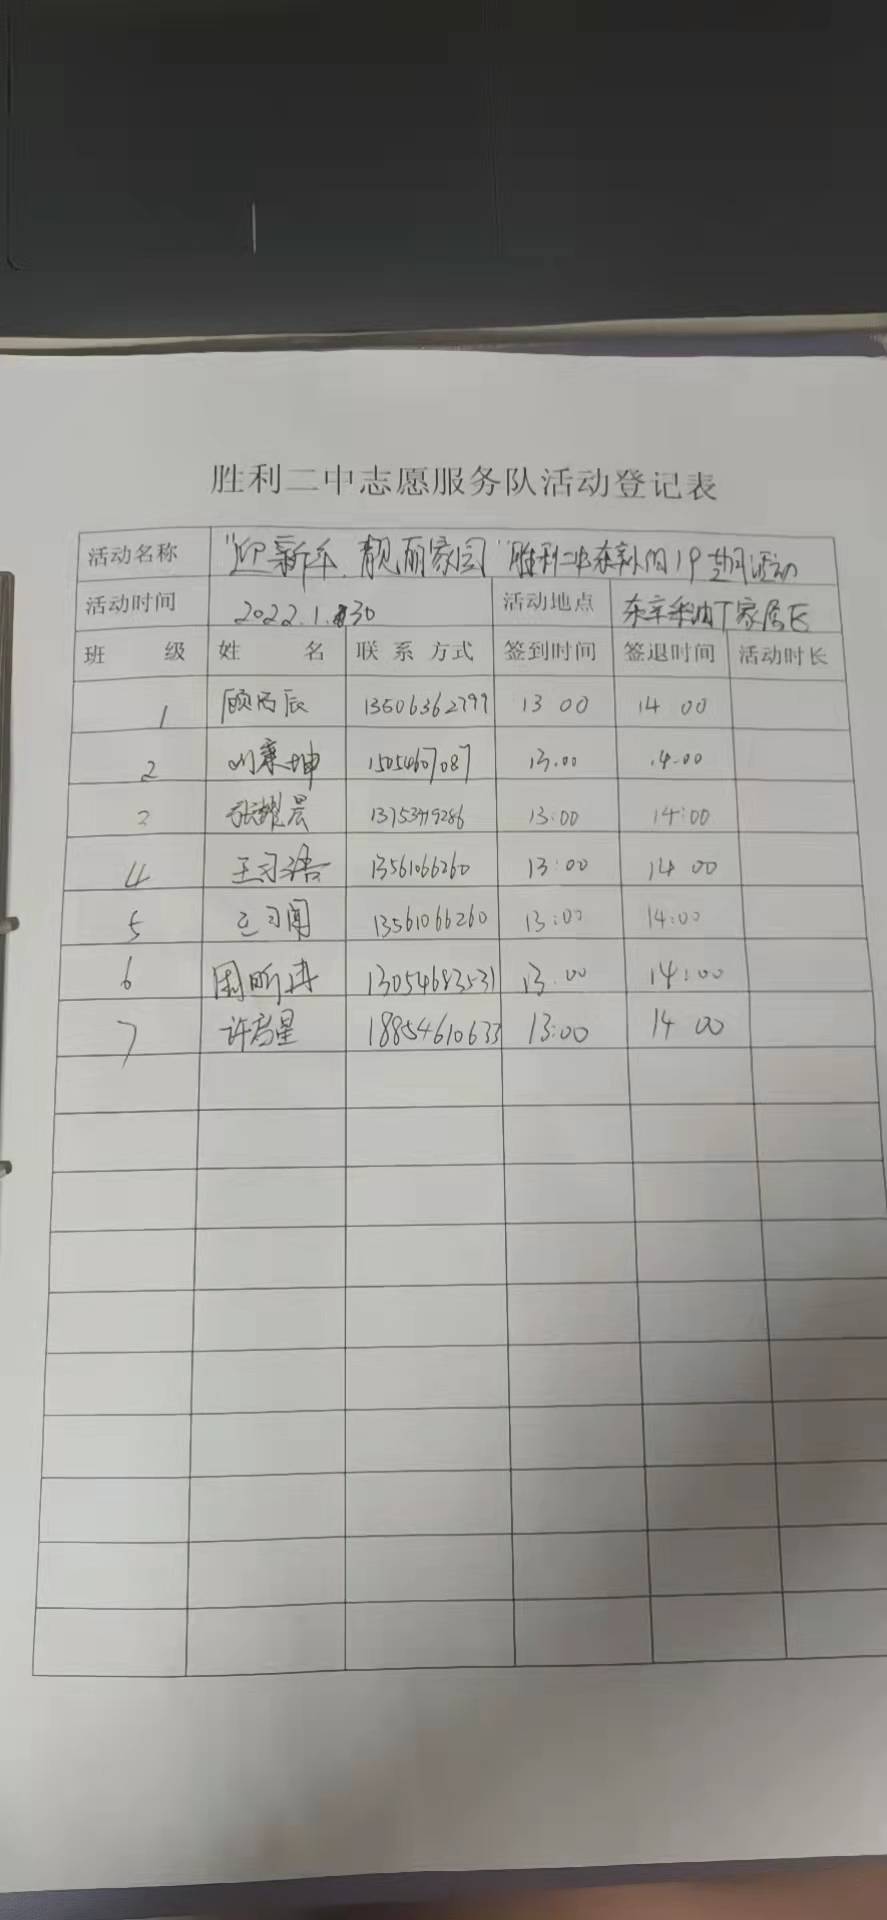 胜利二中志愿服务队活动登记表
活动名称 "迎新年、靓丽家园"胜利二中东辛 活动
活动时间 2022.1.30 活动地点 东辛采油厂家属区
班 级 姓 名 联 系 方式 签到时间 签退时间 活动时长
1 顾 辰 13506362799 13 00 14 00
2 刘 坤 15054607087 13.00 14.00
张 晨 13:00 14:00
4 王习浩 13561066260 13:00 14 00
5 王习闻 13561066260 13:00 14:00
6 周昕冉 13054683531 13.00 14:00
7 许启星 18854610633 13:00 14 00